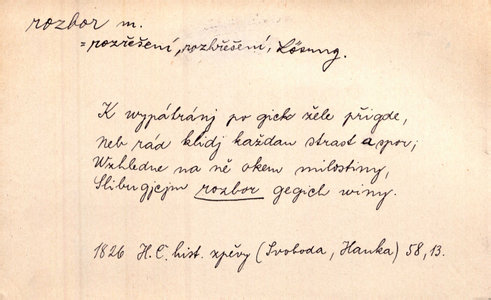 rozbor m.
= rozřešení, rozhřešení, Lösung.
K wypátránj po gich žele přigde,
neb rád klidj každau strast a spor;
Wzhledne na ně okem milostiny,
Slibugjcjm rozbor gegich winy.
1826 H. C. hist. zpěvy (Svoboda, Hanka) 58, 13.